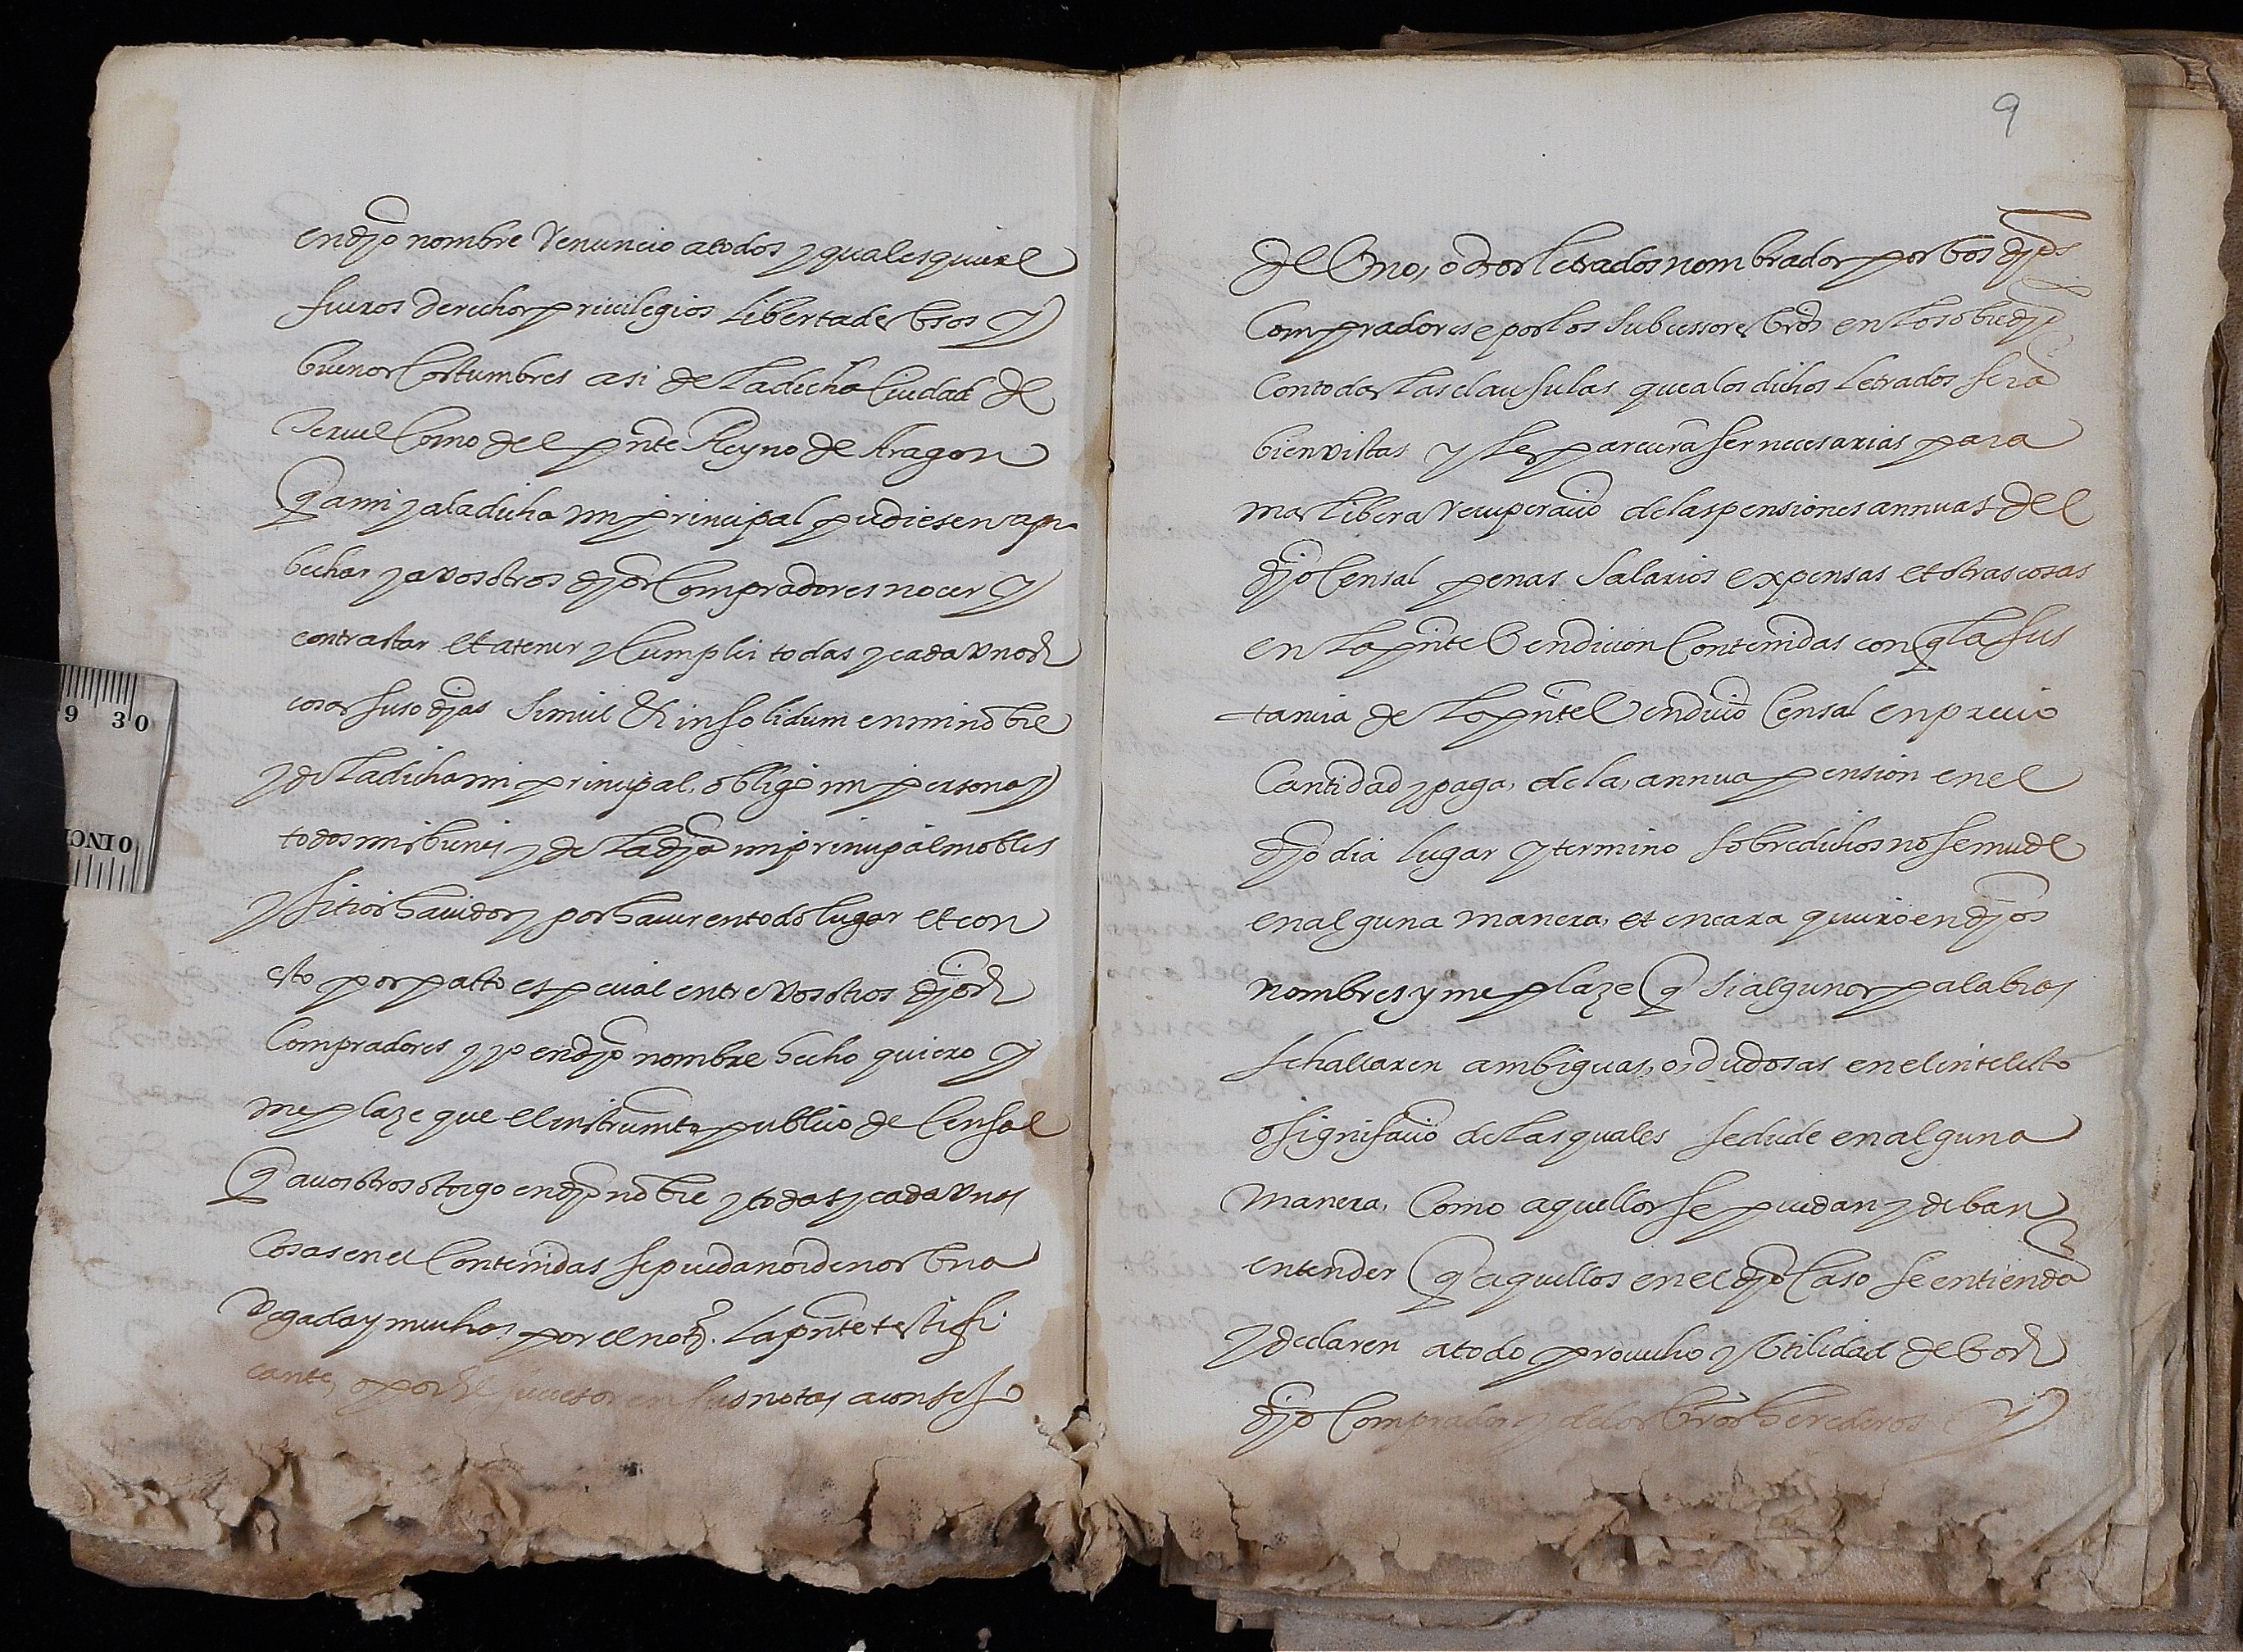 en dijo nombre Renuncio a todos y qualesquiere
fueros derechos y priuilegios libertades vsos y
buenos Costumbres asi de la dicha Ciudad de
Teruel Como del pnte Reyno de Aragon
q a mi y a la dicha mi principal pudiesen apro
bechar y a vosotros djos Compradores nocer y
contrastar et atener y Cumplir todas y cada unas
cosas suso djas simul et insolidum en mi nobre
y de la dicha mi principal, obligo mi persona y
todos mis bienes y de la dja mi principal mobles
y sitios hauidos y por hauer en todo lugar et con
esto por patto espeçial entre vosotros djos
Compradores y yo en djo nombre hecho quiero y
me plaze que el instrumto publico de Censal
q a uosotros otorgo en djo nobre y todas y cada unas
Cosas en el Contenidas se puedan ordenar vna
vegada y muchas por el not. la pnte testifi
cante, o por el sucesor en sus notas a consejo
9
del Vno, o dos letrados nombrados por vos djos
Compradores e por los subcessores vros en lo sobredjo
Con todas las clausulas que a los dichos letrados sera
bien vistas y les parecera ser necesarias para
mas libera recuperacio de las pensiones annuas del
djo Censal penas Salarios expensas et otras cosas
en la pnte Vendicion Contenidas con q la sus
tancia de la pnte Vendicio Censal en precio
Cantidad y paga, de la, annua pension en el
djo dia lugar y termino sobredichos no se mude
en alguna manera, et encara quiero en djos
nombres y me plaze q si algunas palabras
se hallaren ambiguas, o dudosas en el intelecto
o significacio de las quales se dude en alguna
manera, Como aquellos se puedan y deban
entender q aquellos en el djo Caso se entienda
y declaren a todo prouecho y vtilidad de vos
djo Comprador y de los vros herederos y